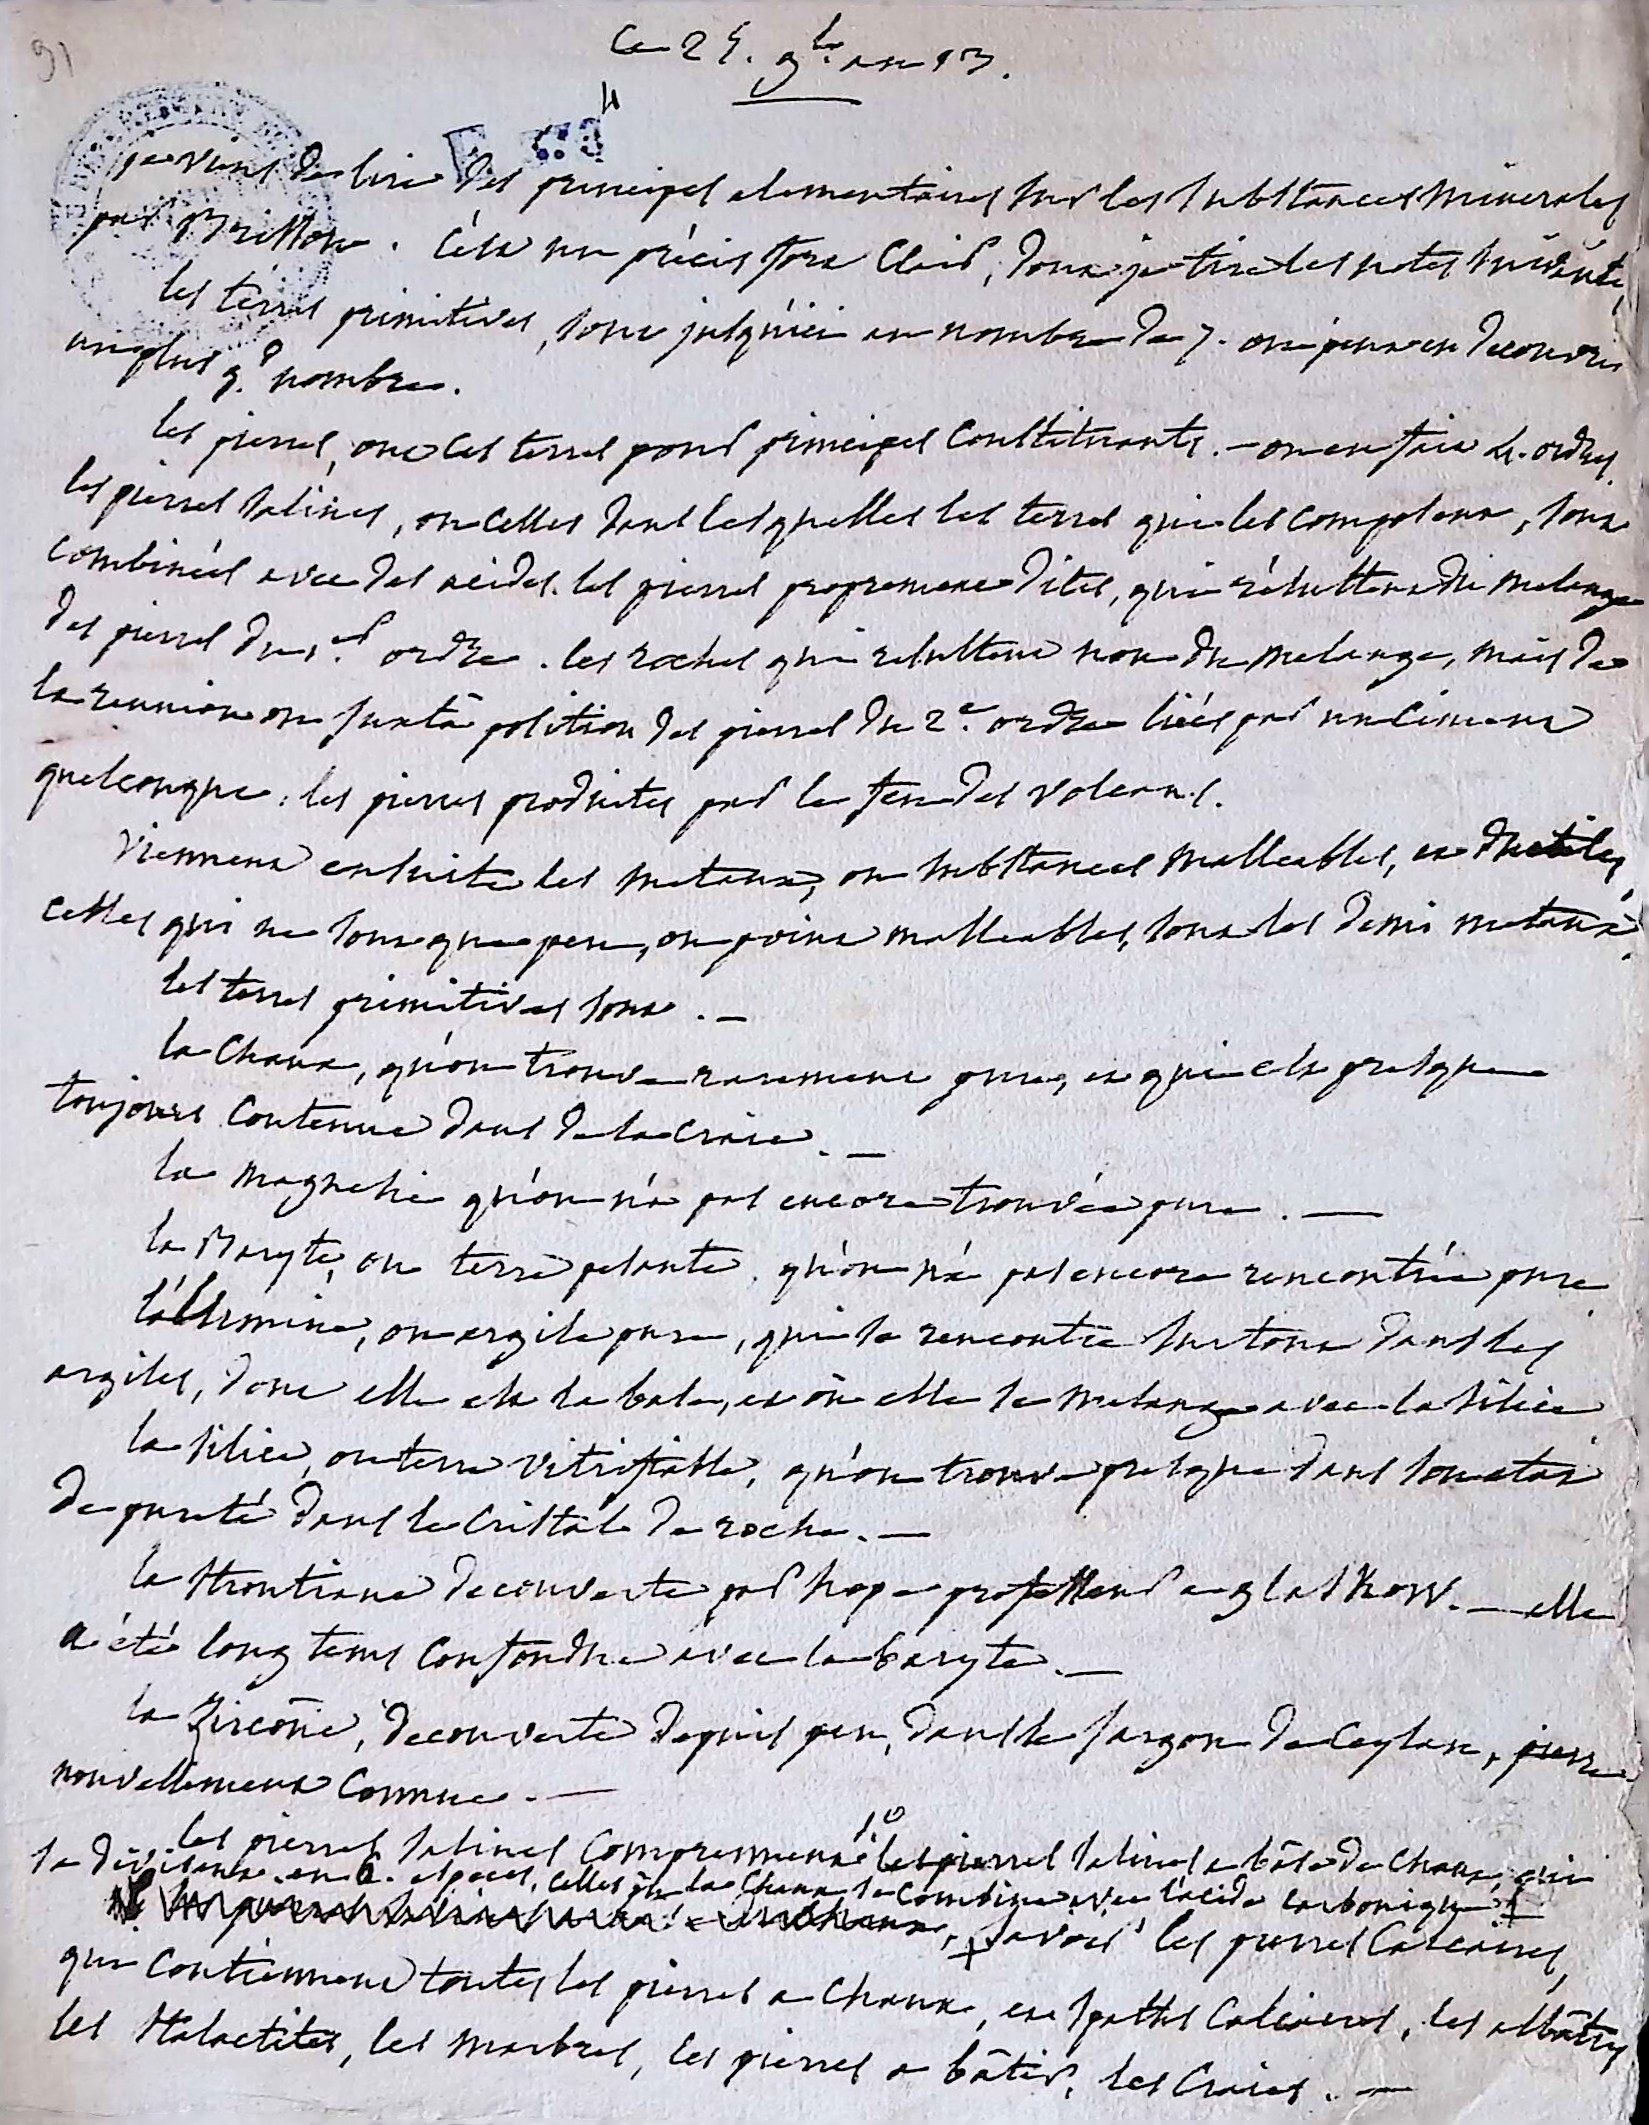 91
Ce 25. 9bre an 13.
je viens de lire des principes elementaires sur les substances minerales
par Brisson. C'est un précis fort clair, dont je tire les notes suivantes,
les terres primitives, sont jusqu'ici au nombre de 7. on peut en decouvrir
un plus gd nombre.
les pierres, ont ces terres pour principes constituants. — on en fait 4. ordres.
les pierres salines, ou celles dans lesquelles les terres qui les composent, sont
combinées avec des acides. les pierres proprement dites, qui résultent du melange
des pierres du 1.er ordre. les roches qui resultent non du melange, mais de
la reunion ou juxta position des pierres du 2.e ordre liées par un ciment
quelconque. les pierres produites par le feu des volcans.
Viennent ensuite les metaux, ou substances malleables, et ductiles,
celles qui ne sont que peu, ou point malleables, sont les demi metaux.
les terres primitives sont. —
la chaux, qu'on trouve rarement pure, et qui est presque
toujours contenue dans de la craie. —
la magnesie qu'on n'a pas encore trouvée pure. —
la Baryte, ou terre pesante, qu'on n'a pas encore rencontrée pure
l'alumine, ou argile pure, qui se rencontre surtout dans les
argiles, dont elle est la base, et où elle se melange avec la silice
la silice, ou terre vitrifiable, qu'on trouve presque dans son etat
de pureté dans le cristal de roche. —
la strontiane decouverte par hope professeur a glaskow. — elle
a été long tems confondue avec la baryte. —
la Zircone, decouverte depuis peu, dans le jargon de Ceylan, pierre
nouvellement connue. —
les pierres salines comprennent 1.° les pierres salines a bâse de chaux, qui
se divisent en 6. especes, celles où la chaux se combine avec l'acide carbonique +
+ savoir les pierres calcaires,
qui contiennent toutes les pierres a chaux, et spaths calcaires, les albâtres
les stalactites, les marbres, les pierres a bâtir, les craies. —